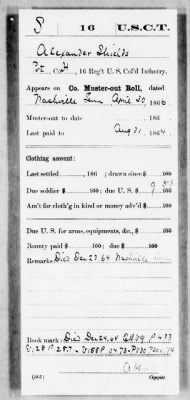 S 16 U.S.C.T.
Alexander Shields
Pvt., Co. H, 16 Reg't U. S. Col'd Infantry.
Appears on Co. Muster-out Roll, dated
Nashville Tenn April 30, 1866.
Muster-out to date 186 .
Last paid to Aug 31, 1864.
Clothing account:
Last settled , 186 ; drawn since $ 100
Due soldier $ 100; due U. S. $ 9 53/100
Am't for cloth'g in kind or money adv'd $ 100
Due U. S. for arms, equipments, &c., $ 100
Bounty paid $ 100; due $ 100
Remarks: Died Dec 27 64 Nashville Tenn
Book mark:
Copyist.